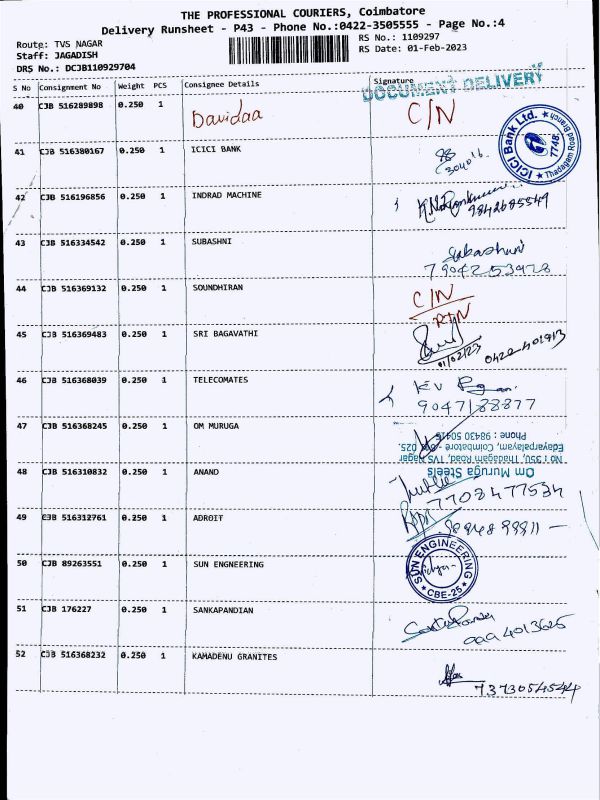 THE PROFESSIONAL COURIERS, Coimbatore
Delivery Runsheet - P43 - Phone No.:0422-3505555 - Page No.:4
Route: TVS NAGAR
RS No.: 1109297
Staff: JAGADISH
RS Date: 01-Feb-2023
DRS No.: DCJB110929704
S No Consignment No Weight PCS Consignee Details Signature
DOCUMENT DELIVERY
40 CJB 516289898 0.250 1 Davidaa C/N
ICICI Bank Ltd. 7748 Thadagam Road Branch
41 CJB 516380167 0.250 1 ICICI BANK
304016
42 CJB 516196856 0.250 1 INDRAD MACHINE
9842685549
43 CJB 516334542 0.250 1 SUBASHNI Subashni
7904253928
44 CJB 516369132 0.250 1 SOUNDHIRAN C/N
RTN
45 CJB 516369483 0.250 1 SRI BAGAVATHI
01/02/23
46 CJB 516368039 0.250 1 TELECOMATES KV
9047188877
47 CJB 516368245 0.250 1 OM MURUGA
Om Muruga Steels
No : 350, Thadagam Road, TVS Nagar
Edayarpalayam, Coimbatore - 641 025.
Phone : 98430 50416
48 CJB 516310832 0.250 1 ANAND
7708477534
49 CJB 516312761 0.250 1 ADROIT
50 CJB 89263551 0.250 1 SUN ENGNEERING
SUN ENGINEERING CBE-25
51 CJB 176227 0.250 1 SANKAPANDIAN
52 CJB 516368232 0.250 1 KAMADENU GRANITES
7373054544